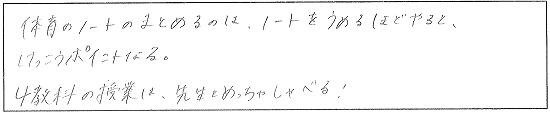 体育のノートのまとめるのは、ノートをうめるほどやると、
けっこうポイントなる。
4教科の授業は、先生とめっちゃしゃべる!